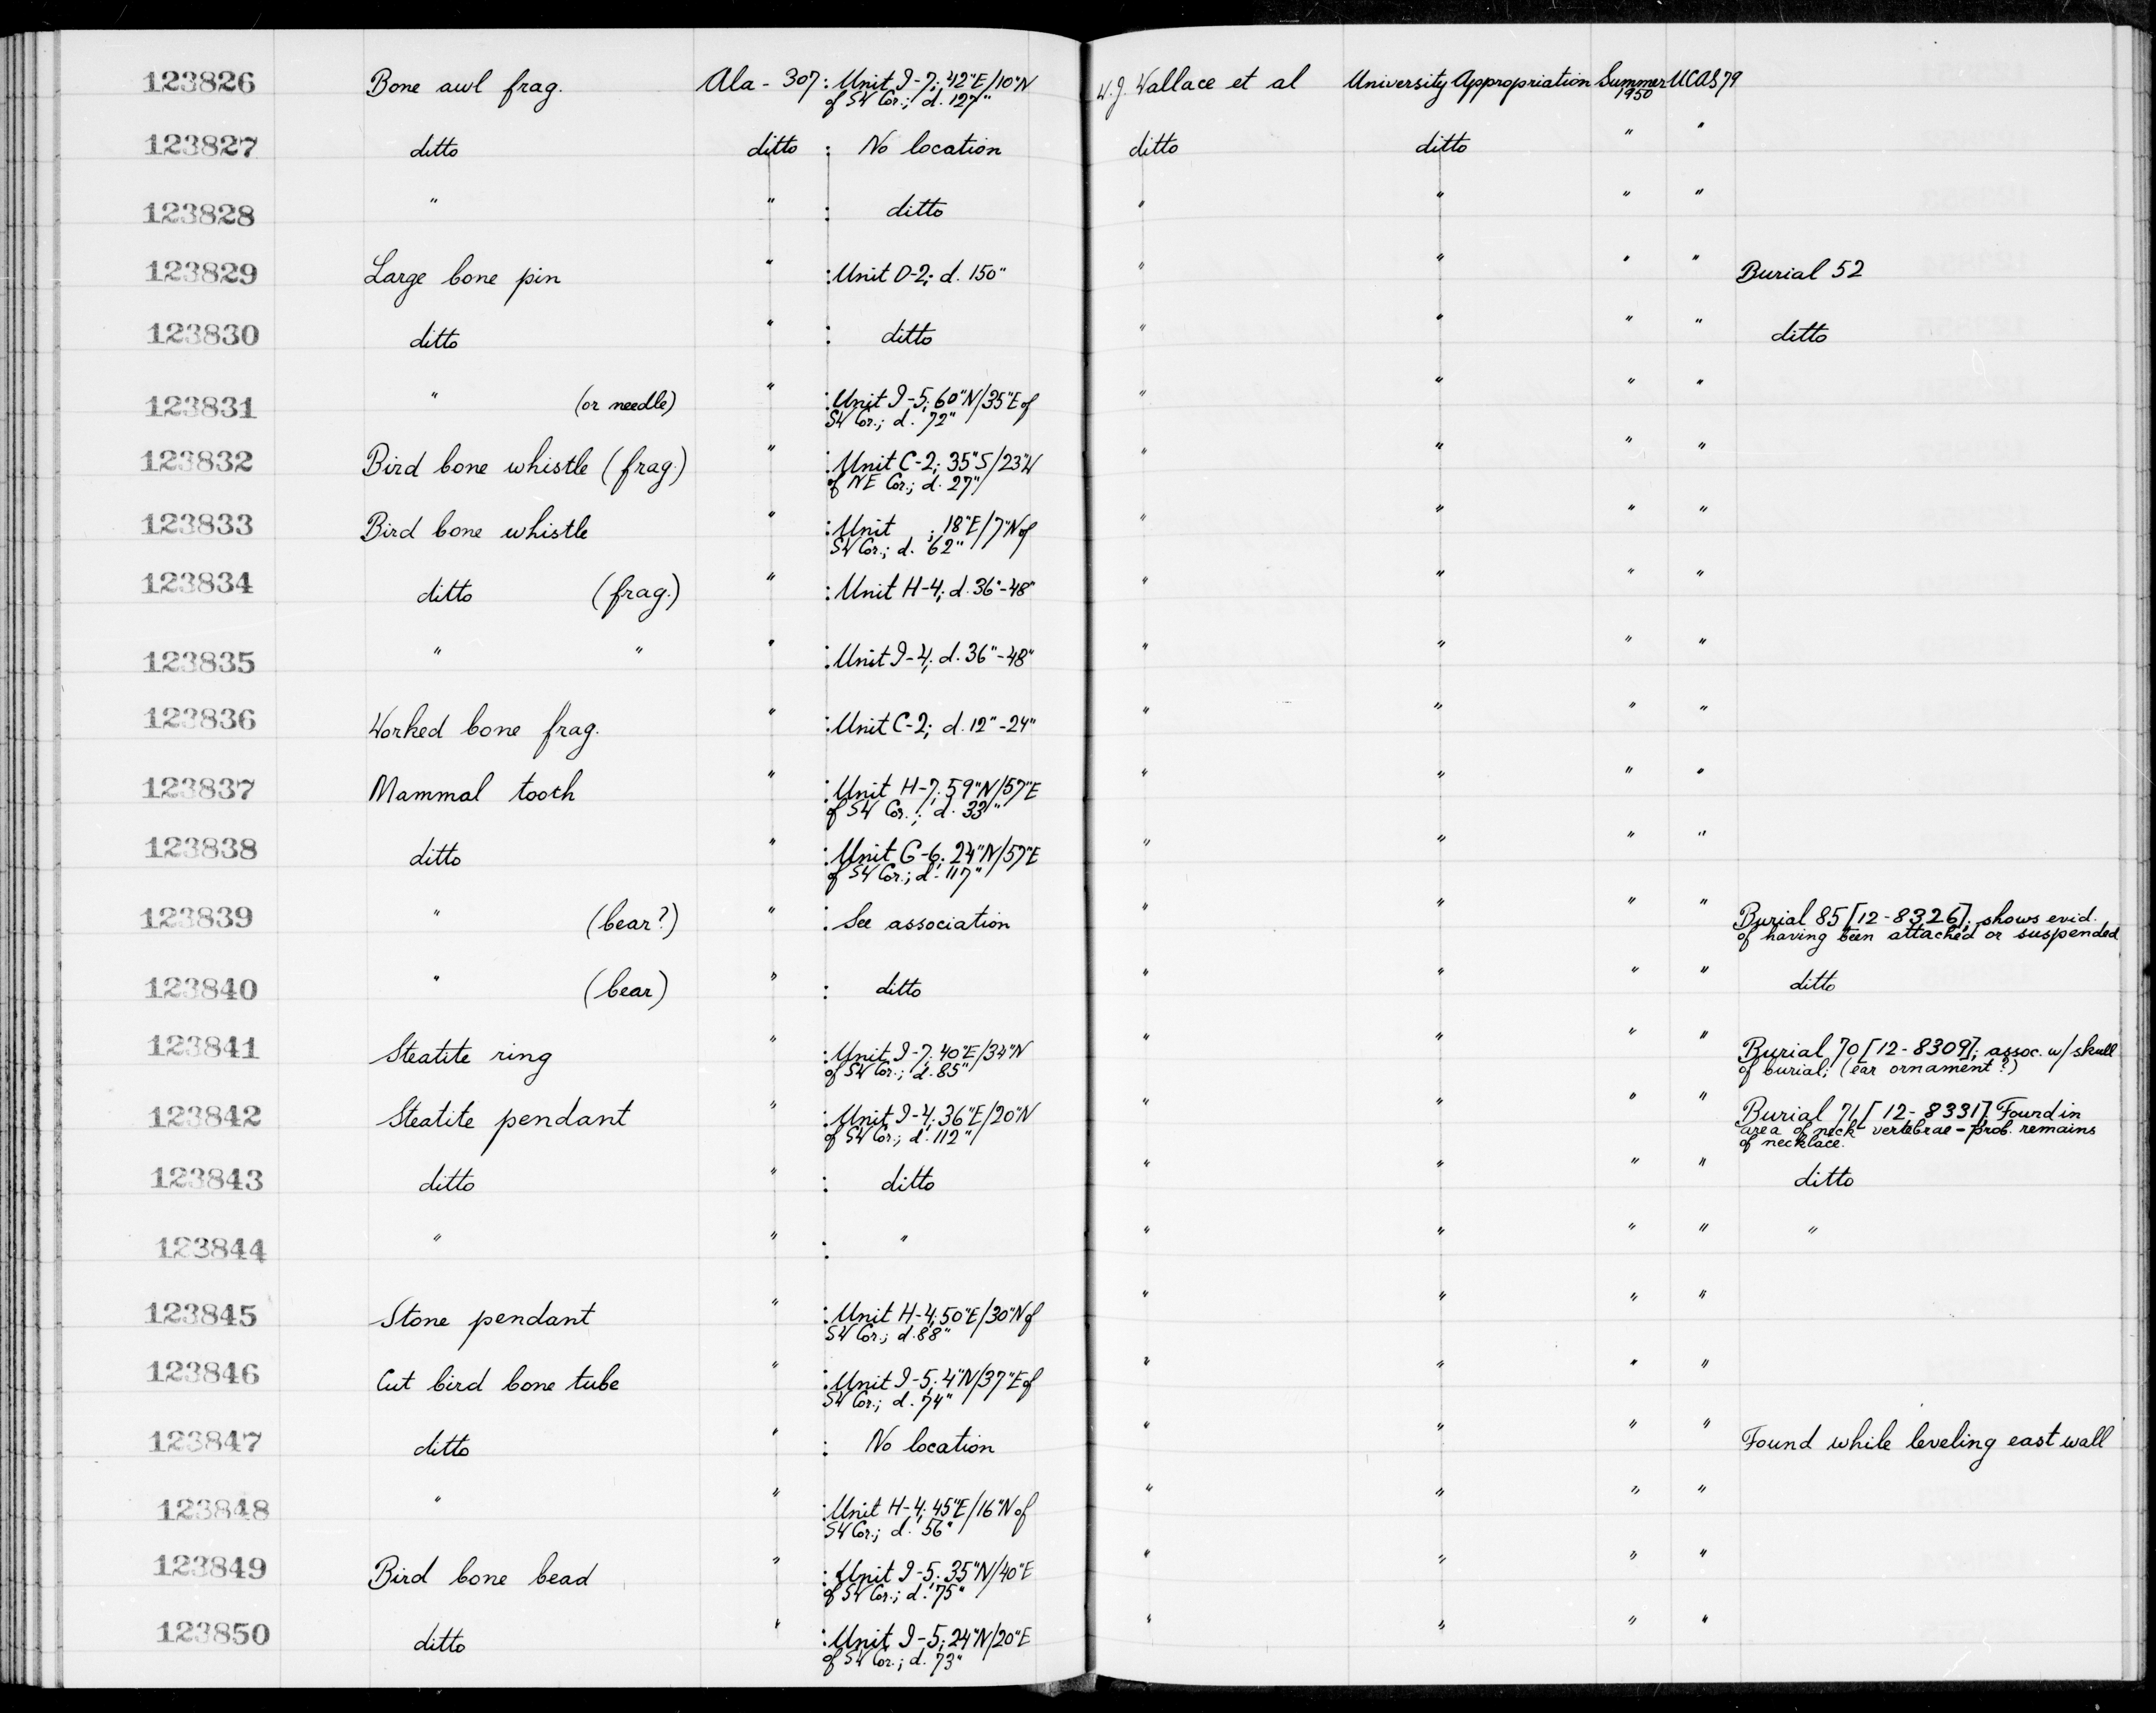 123826 Bone awl frag. Ala - 307: Unit I-7; 42"E/10"N W.J. Wallace et al University Appropriation Summer UCAS 79
of SW Cor.; d. 127" 1950
123827 ditto ditto : No location ditto ditto " "
123828 " " : ditto " " " "
123829 Large bone pin " : Unit D-2; d. 150" " " " " Burial 52
123830 ditto " : ditto " " " " ditto
123831 " (or needle) " : Unit I-5; 60"N/35"E of " " " "
SW Cor.; d. 72"
123832 Bird bone whistle (frag.) " : Unit C-2; 35"S/23"W " " " "
of NE Cor.; d. 27"
123833 Bird bone whistle " : Unit ; 18"E/7"N of " " " "
SW Cor.; d. 62"
123834 ditto (frag.) " : Unit H-4; d. 36"-48" " " " "
123835 " " " : Unit I-4; d. 36"-48" " " " "
123836 Worked bone frag. " : Unit C-2; d. 12"-24" " " " "
123837 Mammal tooth " : Unit H-7; 59"N/57"E " " " "
of SW Cor.; d. 33"
123838 ditto " : Unit G-6; 24"N/57"E " " " "
of SW Cor.; d. 117"
123839 " (bear?) " : See association " " " " Burial 85 [12-8326]; shows evid.
of having been attached or suspended
123840 " (bear) " : ditto " " " " ditto
123841 Steatite ring " : Unit I-7; 40"E/34"N " " " " Burial 70 [12-8309]; assoc. w/ skull
of SW Cor.; d. 85" of burial; (ear ornament?)
123842 Steatite pendant " : Unit I-4; 36"E/20"N " " " " Burial 71, [12-8331]. Found in
of SW Cor.; d. 112" area of neck vertebrae - prob. remains
of necklace.
123843 ditto " : ditto " " " " ditto
123844 " " : " " " " " "
123845 Stone pendant " : Unit H-4; 50"E/30"N of " " " "
SW Cor.; d. 88"
123846 Cut bird bone tube " : Unit I-5; 4"N/37"E of " " " "
SW Cor.; d. 74"
123847 ditto " : No location " " " " Found while leveling east wall
123848 " " : Unit H-4; 45"E/16"N of " " " "
SW Cor.; d. 56"
123849 Bird bone bead " : Unit I-5; 35"N/40"E " " " "
of SW Cor.; d. 75"
123850 ditto " : Unit I-5; 24"N/20"E " " " "
of SW Cor.; d. 73"